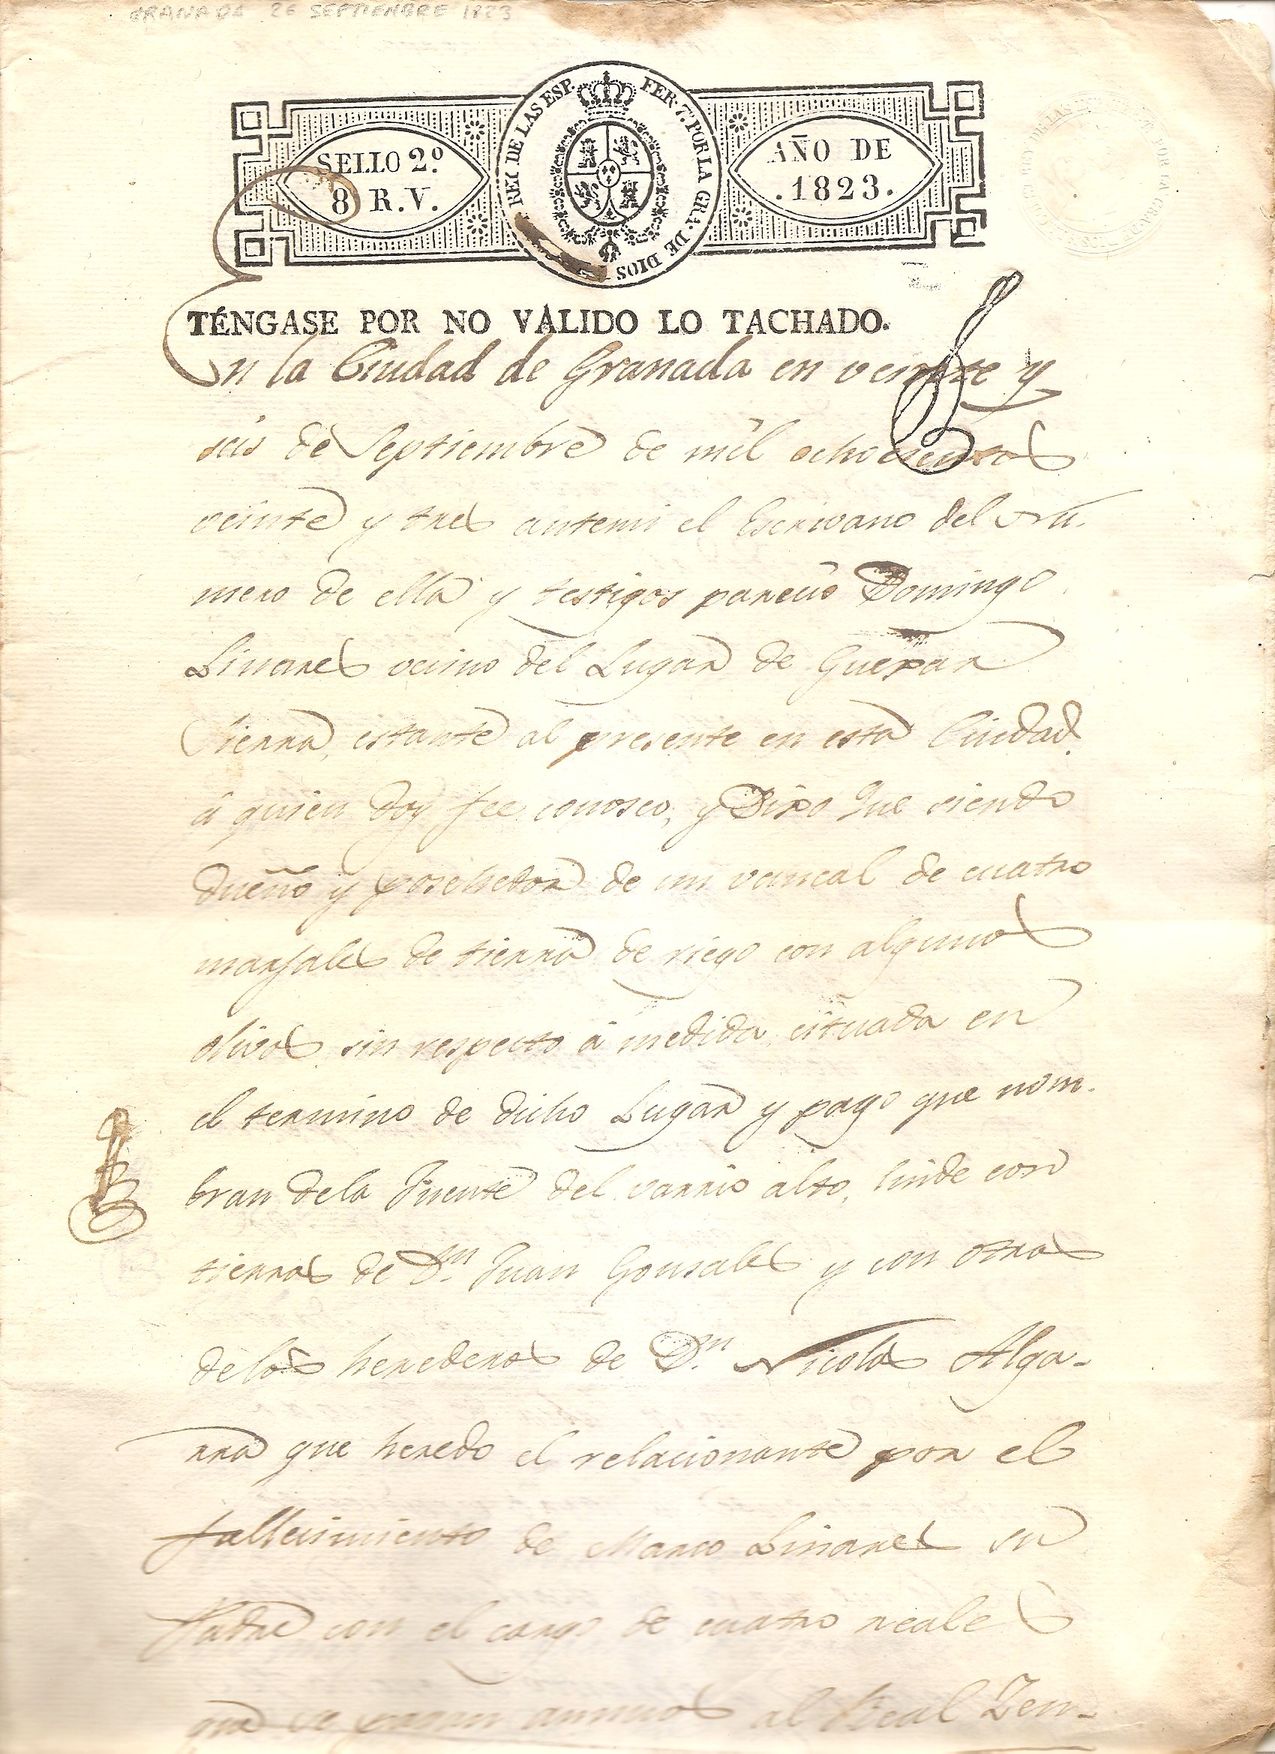 GRANADA 26 SEPTIEMBRE 1823
SELLO 2.º
8 R.V.
FER. 7.º POR LA GRA. DE DIOS REY DE LAS ESP.
AÑO DE
.1823.
TÉNGASE POR NO VÁLIDO LO TACHADO.
En la Ciudad de Granada en veinte y
seis de Septiembre de mil ochocientos
veinte y tres antemi el Escrivano del Nu-
mero de ella y testigos parecio Domingo
Linares vecino del Lugar de Guexar
Sierra, estante al presente en esta Ciudad,
á quien doy fee conosco, y Dixo Que siendo
dueño y posehedor de un vancal de cuatro
marjales de tierra de riego con algunos
olivos sin respecto á medida, cituada en
el termino de dicho Lugar y pago que nom-
bran dela Fuente del varrio alto, linde con
tierras de D.n Juan Gonsales y con otras
delos herederos de D.n Nicolas Alga-
rra que heredo el relacionante por el
fallecimiento de Marco Linares su
Padre con el cargo de cuatro reales
que se pagan annuos al Real Zen-